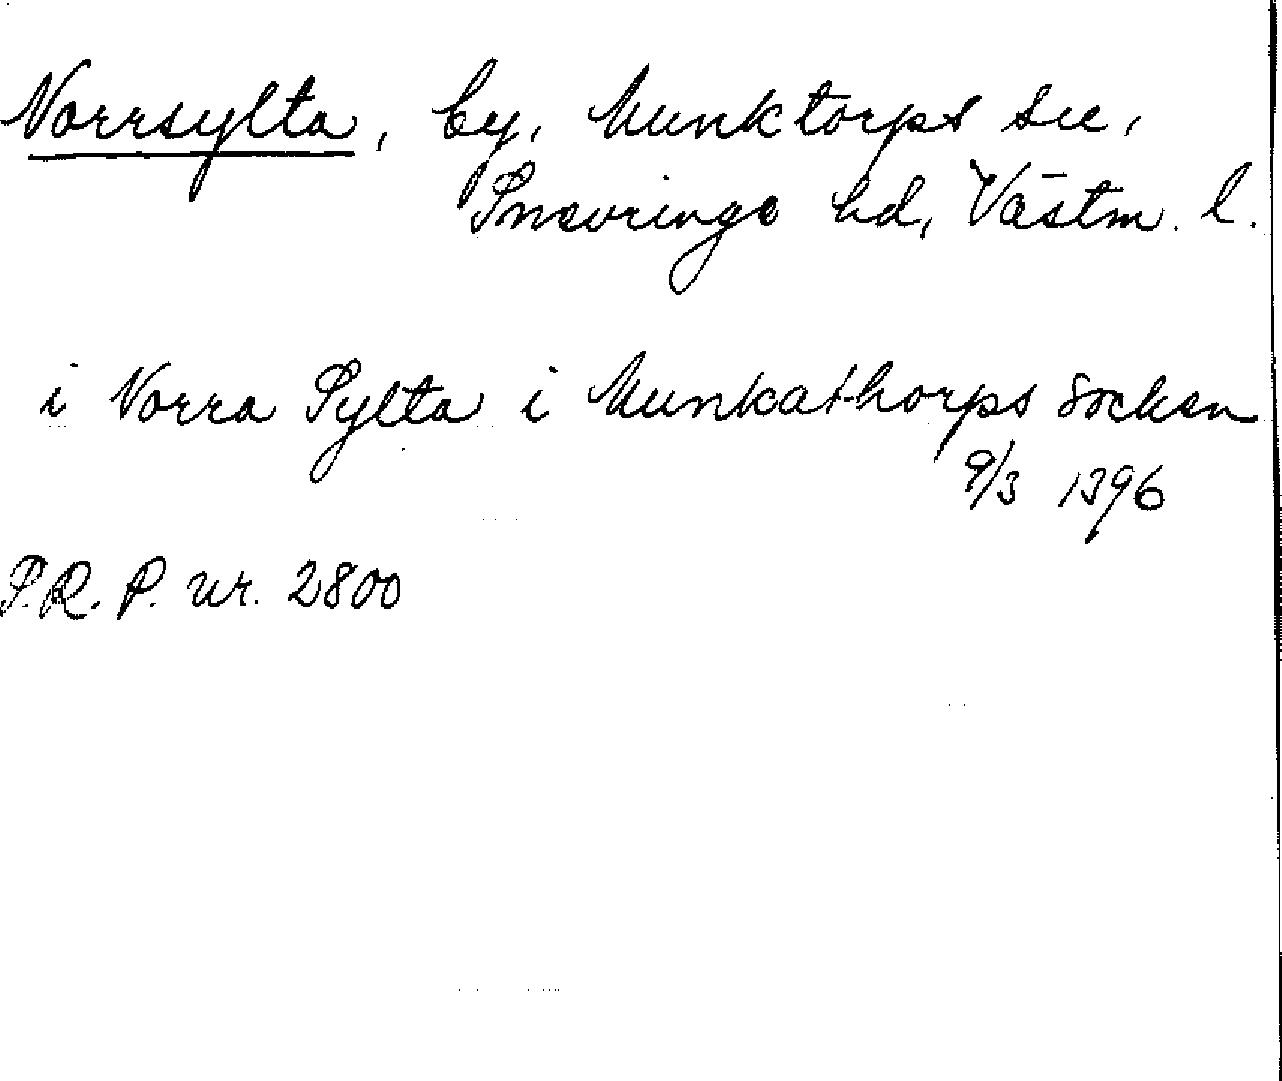 Norrsylta, by, Munktorps sn,
Snevringe hd, Västm. l.
i Norra Sylta i Munkathorps socken
9/3 1396
S.R.P. nr. 2800